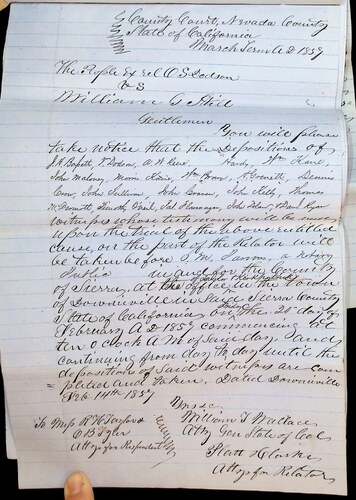 County Court, Nevada County
State of California
March Term A D 1857
The People Ex rel O S Dodson
VS
William G Hill
Gentlemen
You will please
take notice that the depositions of
Hardy, Wm
John Maloney, Moses Wm Dennis
John Sullivan, John John Kelly, Thomas
McDermott, Timothy Pat Flannagan, John &
witnesses whose testimony will be used
upon the trial of the above entitled
cause, on the part of the Relator will
be taken before a notary
Public in and for the County
of Sierra, at the office in the town
of Downieville in Sierra County
State of California on the 20th day of
February A D 1857 commencing at
ten o'clock A M of said day and
continuing from day to day until the
depositions of said witnesses are com
pleted and taken. Dated Downieville
Feb. 14th 1857
Yours &c
William T Wallace
Atty Gen State of Cal
Clarke
Attys for Relator
To Messrs R H Taylor &
C B Tyler
Attys for Respondent